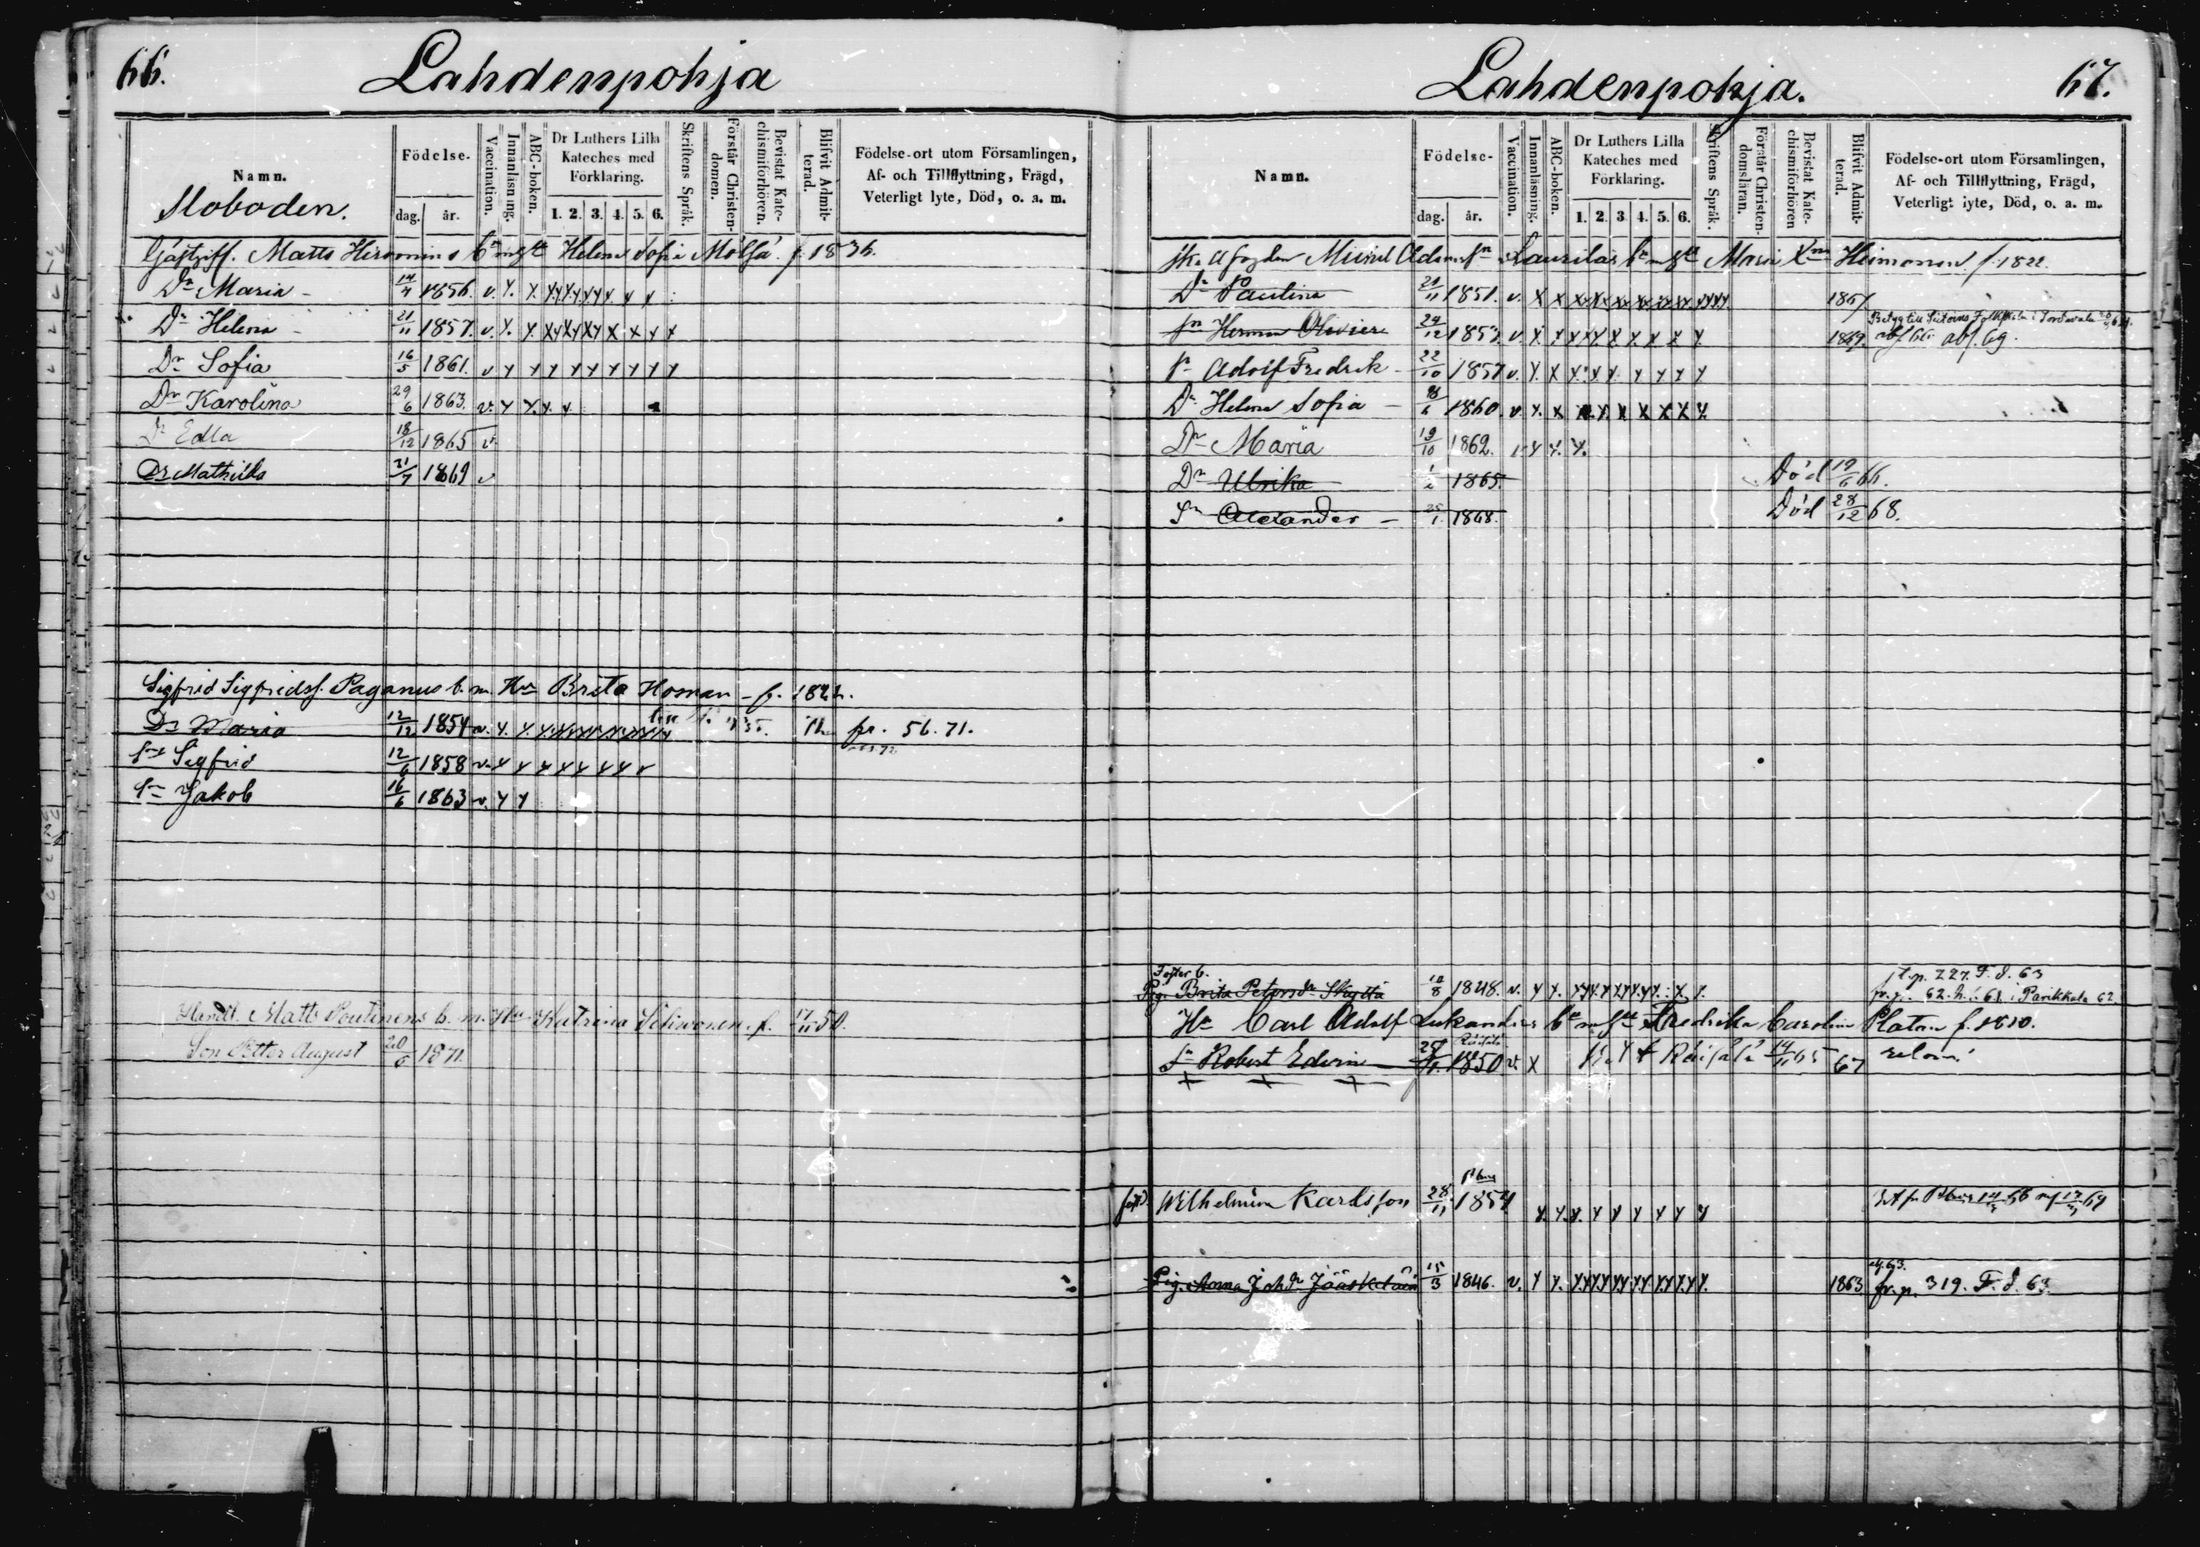 66.
Lahdenpohja
Namn.
Födelse-
dag. år.
Vaccination.
Innanläsning.
ABC-boken.
Dr Luthers Lilla Kateches med Förklaring.
1. 2. 3. 4. 5. 6.
Skriftens Språk.
Förstår Christendomen.
Bevistat Katechismiförhören.
Blifvit Admitterad.
Födelse-ort utom Församlingen, Af- och Tillflyttning, Frägd, Veterligt lyte, Död, o. a. m.
Sloboden.
Gästgiff. Matts Hirvonins Helena Sofia f. 1836.
Dr Maria 14/7 1856. v.
Dr Helena 21/11 1857. v.
Dr Sofia 16/5 1861. v
Dr Karolina 29/6 1863. v.
Dr Edla 18/12 1865 v.
Dr Mathilda 21/7 1869 v
Sigfrid Sigfridsf. Paganus b. m. Hu Brita Homan - f. 1822.
Dr Maria 12/12 1854 v. fr. 56. 71.
Sn Sigfrid 12/6 1858 v.
Sn Jakob 16/6 1863 v.
Handl. Matts Poutinens b. m. Hu Katrina f. 17/11 50.
Son Petter August 20/5 1871.
Lahdenpohja.
67.
Namn.
Födelse-
dag. år.
Vaccination.
Innanläsning.
ABC-boken.
Dr Luthers Lilla Kateches med Förklaring.
1. 2. 3. 4. 5. 6.
Skriftens Språk.
Förstår Christendomsläran.
Bevistat Katechismiförhören
Blifvit Admitterad.
Födelse-ort utom Församlingen, Af- och Tillflyttning, Frägd, Veterligt lyte, Död, o. a. m.
Laurilas Maria Heimonen f. 1822.
Dr Paulina 21/11 1851. v. 1867
Sn Herman Olivier 24/12 1853. v. 1869. abs. 69.
Sn Adolf Fredrik 22/10 1857 v.
Dr Helena Sofia 1860. v.
Dr Maria 19/10 1862.
Dr Ulrika 1/2 1865. Död 19/6 66.
Sn Alexander 25/1 1868. Död 28/12 68.
Pig. Brita Petersdr Skyttä 18/8 1848. v. fr. p. 227. F. d. 63
62. Parikkala 62.
Hr Carl Adolf Lukanders Fredrika Carolina Platan f. 1810.
Sn Robert Edvin 1850 v. Räisälä 67
Wilhelmina Karlsson 28/11 1854
Pig. Anna Johdr Jääskeläin 15/3 1846. v. 1863 fr. p. 319. F. d. 63.